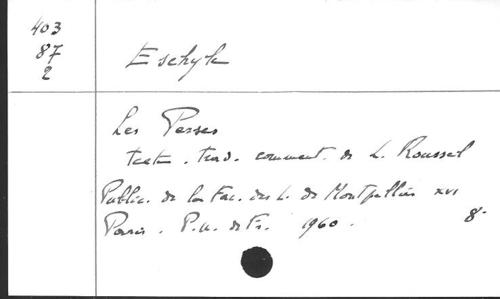 403
87
2
Eschyle
Les Perses
texte. trad. comment. de L. Roussel
Public. de la Fac. des L. de Montpellier XVI
Paris. P.U. de Fr. 1960. 8°